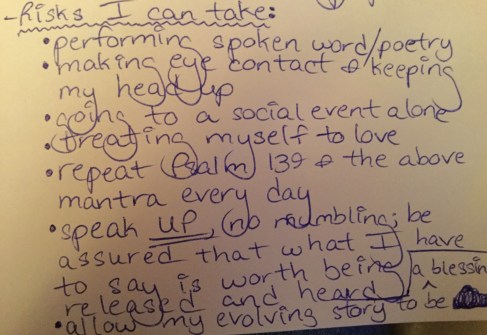 -Risks I can take:
•performing spoken word/poetry
•making eye contact & keeping
my head up
•going to a social event alone
•treating myself to love
•repeat Psalm 139 & the above
mantra every day
•speak up, (no mumbling; be
assured that what I have
to say is worth being a blessin
released and heard)
•allow my evolving story to ^ be